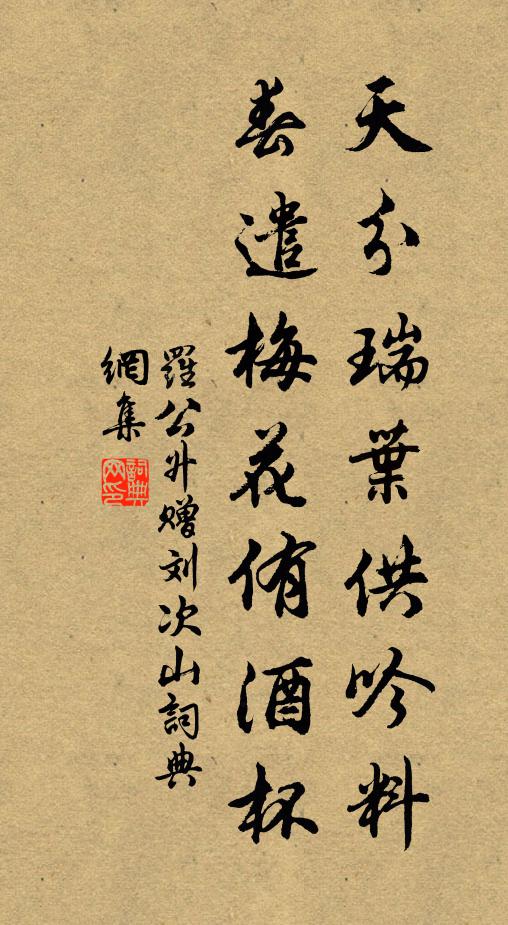 天分瑞葉供吟料
春遣梅花侑酒杯
羅公升贈刘次山詞典
網集
詞典網印